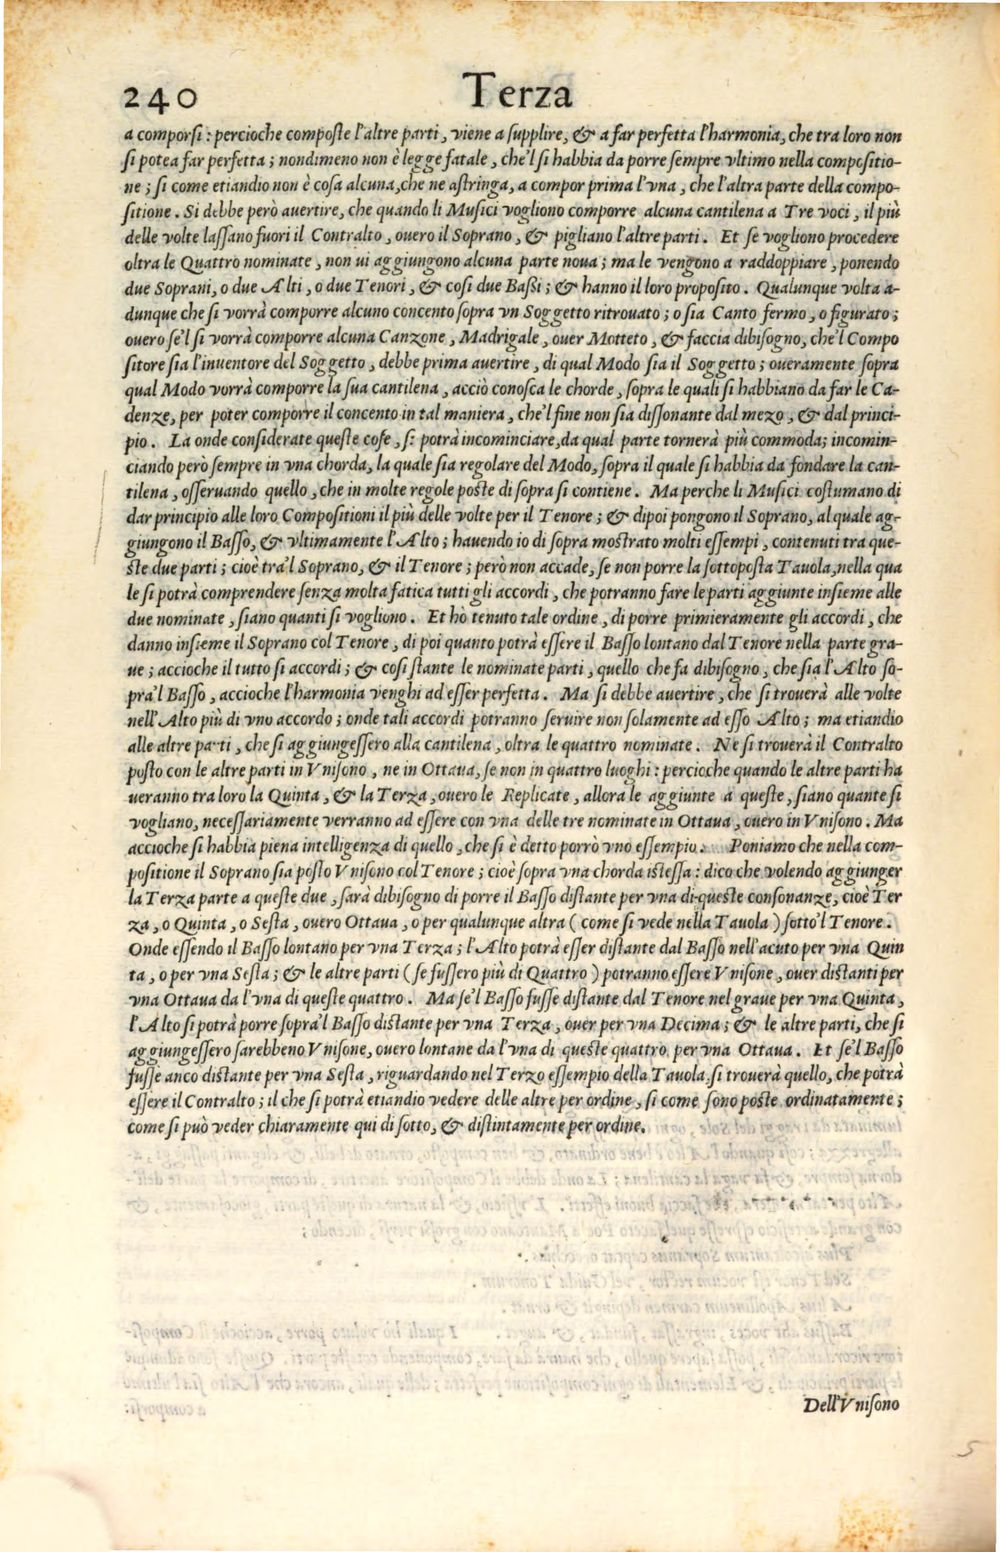 240 Terza
a comporsi: percioche composte l'altre parti, viene a supplire, & a far perfetta l'harmonia, che tra loro non
si potea far perfetta; nondimeno non è legge fatale, che'l si habbia da porre sempre vltimo nella compositio-
ne; si come etiandio non è cosa alcuna, che ne astringa, a compor prima l'vna, che l'altra parte della compo-
sitione. Si debbe però auertire, che quando li Musici vogliono comporre alcuna cantilena a Tre voci, il più
delle volte lassano fuori il Contralto, ouero il Soprano, & pigliano l'altre parti. Et se vogliono procedere
oltra le Quattro nominate, non ui aggiungono alcuna parte noua; ma le vengono a raddoppiare, ponendo
due Soprani, o due Alti, o due Tenori, & cosi due Bassi; & hanno il loro proposito. Qualunque volta a-
dunque che si vorrà comporre alcuno concento sopra vn Soggetto ritrouato; o sia Canto fermo, o figurato;
ouero se'l si vorrà comporre alcuna Canzone, Madrigale, ouer Motteto, & faccia dibisogno, che'l Compo
sitore sia l'inuentore del Soggetto, debbe prima auertire, di qual Modo sia il Soggetto; oueramente sopra
qual Modo vorrà comporre la sua cantilena, acciò conosca le chorde, sopra le quali si habbiano da far le Ca-
denze, per poter comporre il concento in tal maniera, che'l fine non sia dissonante dal mezo, & dal princi-
pio. La onde considerate queste cose, si potrà incominciare, da qual parte tornerà più commoda; incomin-
ciando però sempre in vna chorda, la quale sia regolare del Modo, sopra il quale si habbia da fondare la can-
tilena, osseruando quello, che in molte regole poste di sopra si contiene. Ma perche li Musici costumano di
dar principio alle loro Compositioni il più delle volte per il Tenore; & dipoi pongono il Soprano, al quale ag-
giungono il Basso, & vltimamente l'Alto; hauendo io di sopra mostrato molti essempi, contenuti tra que-
ste due parti; cioè tra'l Soprano, & il Tenore; però non accade, se non porre la sottoposta Tauola, nella qua
le si potrà comprendere senza molta fatica tutti gli accordi, che potranno fare le parti aggiunte insieme alle
due nominate, siano quanti si vogliono. Et hò tenuto tale ordine, di porre primieramente gli accordi, che
danno insieme il Soprano col Tenore, di poi quanto potrà essere il Basso lontano dal Tenore nella parte gra-
ue; accioche il tutto si accordi; & cosi stante le nominate parti, quello che fa dibisogno, che sia l'Alto so-
pra'l Basso, accioche l'harmonia venghi ad esser perfetta. Ma si debbe auertire, che si trouerà alle volte
nell'Alto più di vno accordo; onde tali accordi potranno seruire non solamente ad esso Alto; ma etiandio
alle altre parti, che si aggiungessero alla cantilena, oltra le quattro nominate. Ne si trouerà il Contralto
posto con le altre parti in Vnisono, ne in Ottaua, se non in quattro luoghi: percioche quando le altre parti ha
ueranno tra loro la Quinta, & la Terza, ouero le Replicate, allora le aggiunte a queste, siano quante si
vogliano, necessariamente verranno ad essere con vna delle tre nominate in Ottaua, ouero in Vnisono. Ma
accioche si habbia piena intelligenza di quello, che si è detto porrò vno essempio. Poniamo che nella com-
positione il Soprano sia posto Vnisono col Tenore; cioè sopra vna chorda istessa: dico che volendo aggiunger
la Terza parte a queste due, sarà dibisogno di porre il Basso distante per vna di queste consonanze, cioè Ter
za, o Quinta, o Sesta, ouero Ottaua, o per qualunque altra (come si vede nella Tauola) sotto'l Tenore.
Onde essendo il Basso lontano per vna Terza; l'Alto potrà esser distante dal Basso nell'acuto per vna Quin
ta, o per vna Sesta; & le altre parti (se fussero più di Quattro) potranno essere Vnisone, ouer distanti per
vna Ottaua da l'vna di queste quattro. Ma se'l Basso fusse distante dal Tenore nel graue per vna Quinta,
l'Alto si potrà porre sopra'l Basso distante per vna Terza, ouer per vna Decima; & le altre parti, che si
aggiungessero sarebbeno Vnisone, ouero lontane da l'vna di queste quattro per vna Ottaua. Et se'l Basso
fusse anco distante per vna Sesta, riguardando nel Terzo essempio della Tauola si trouerà quello, che potrà
essere il Contralto; il che si potrà etiandio vedere delle altre per ordine, si come sono poste ordinatamente;
come si può veder chiaramente qui di sotto, & distintamente per ordine.
Dell'Vnisono
5